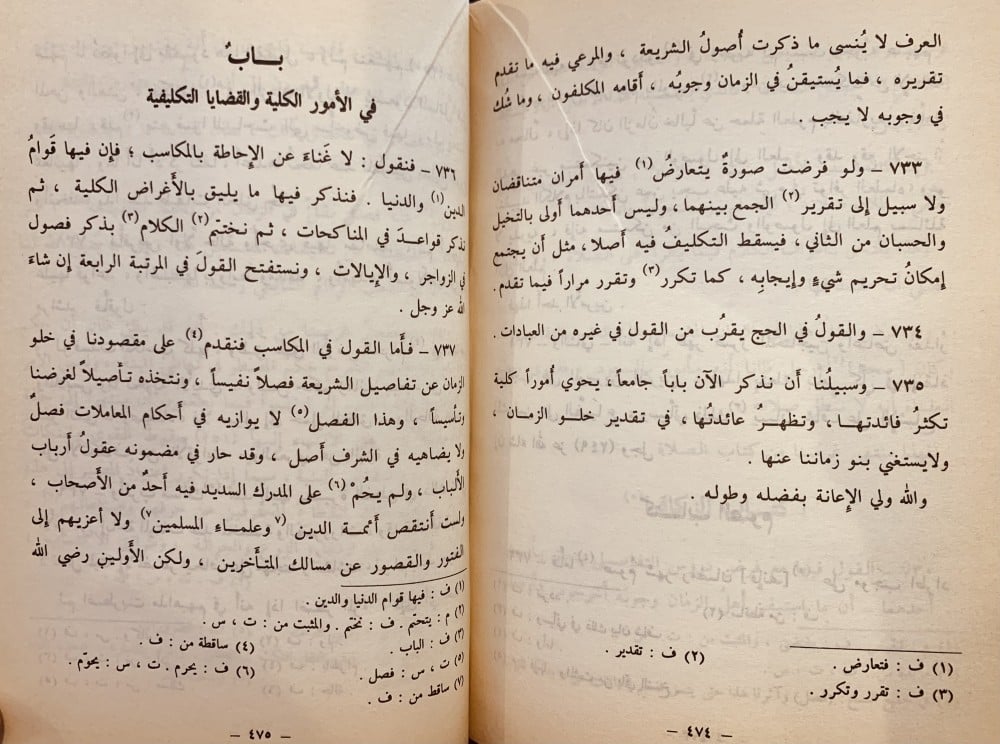 العرف لا يُنسى ما ذكرت أصولُ الشريعة ، والمرعي فيه ما تقدم
تقريره ، فما يُستيقنُ في الزمان وجوبُه ، أقامه المكلفون ، وما شُك
في وجوبه لا يجب .
٧٣٣ - ولو فرضت صورةٌ يتعارضُ (١) فيها أمران متناقضان
ولا سبيل إلى تقرير (٢) الجمع بينهما ، وليس أحدهما أولى بالتخيل
والحسبان من الثاني ، فيسقط التكليفُ فيه أصلا ، مثل أن يجتمع
إمكانُ تحريم شيءٍ وإيجابِه ، كما تكرر (٣) وتقرر مراراً فيما تقدم .
٧٣٤ - والقولُ في الحج يقرُب من القول في غيره من العبادات .
٧٣٥ - وسبيلُنا أن نذكر الآن باباً جامعاً ، يحوي أموراً كلية
تكثرُ فائدتهـا ، وتظهـرُ عائدتُها ، في تقدير خلـو الزمـان ،
ولايستغني بنو زماننا عنها .
والله ولي الإعانة بفضله وطوله .
(١) ف : فتعارض .
(٢) ف : تقدير .
(٣) ف : تقرر وتكرر .
- ٤٧٤ -
بـابٌ
في الأمور الكلية والقضايا التكليفية
٧٣٦ - فنقول : لا غَناءَ عن الإحاطة بالمكاسب ؛ فإن فيها قوامُ
الدين (١) والدنيا . فنذكر فيها ما يليق بالأغراض الكلية ، ثـم
نذكر قواعـدَ في المناكحات ، ثـم نختتم (٢) الكلام (٣) بذكر فصول
في الزواجر ، والإيالات ، ونستفتح القولَ في المرتبة الرابعة إن شاءَ
الله عز وجل .
٧٣٧ - فأما القول في المكاسب فنقدم (٤) على مقصودنا في خلو
الزمان عن تفاصيل الشريعة فصلاً نفيساً ، ونتخذه تـأصيلاً لغرضنا
وتأسيساً ، وهذا الفصل (٥) لا يوازيه في أحكام المعاملات فصلٌ
ولا يضاهيه في الشرف أصل ، وقد حار في مضمونه عقولُ أرباب
الألباب ، ولم يحُمْ (٦) على المدرك السديد فيه أحدٌ من الأصحاب ،
ولست أنتقص أئمـة الدين (٧ وعلمـاءِ المسلمين ٧) ولا أعزيهم إلى
الفتور والقصور عن مسالك المتأخرين ، ولكن الأولين رضي الله
(١) ف : فيها قوام الدنيا والدين .
(٢) م : يتحتم . ف : نختم . والمثبت من : ت ، س .
(٣) ف : الباب .
(٤) ساقطة من : ف .
(٥) ت ، س : فصل .
(٦) ف : يحرم . ت ، س : يحوّم .
(٧) ساقط من : ف .
- ٤٧٥ -